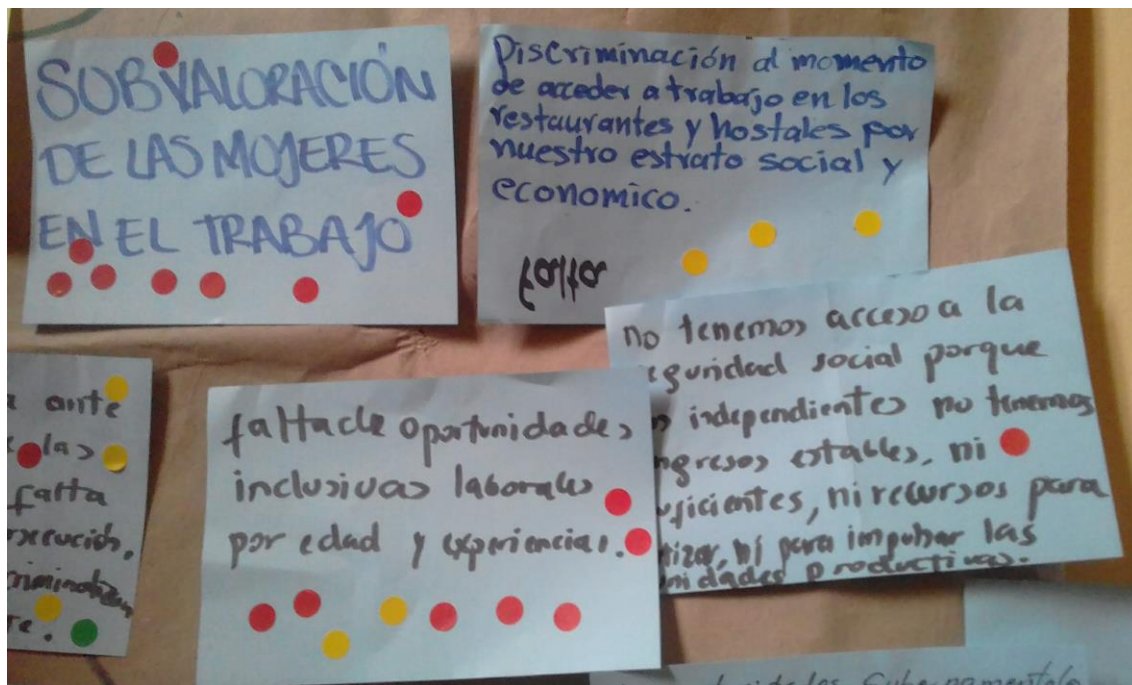 SUBVALORACIÓN
DE LAS MUJERES
EN EL TRABAJO
Discriminación al momento
de acceder a trabajo en los
restaurantes y hostales por
nuestro estrato social y
economico.
falta
no tenemos acceso a la
seguridad social porque
independientes no tenemos
ingresos estables, ni
suficientes, ni recursos para
ni para impulsar las
productivas.
ante
las
falta
falta de oportunidades
inclusivas laborales
por edad y experiencias.